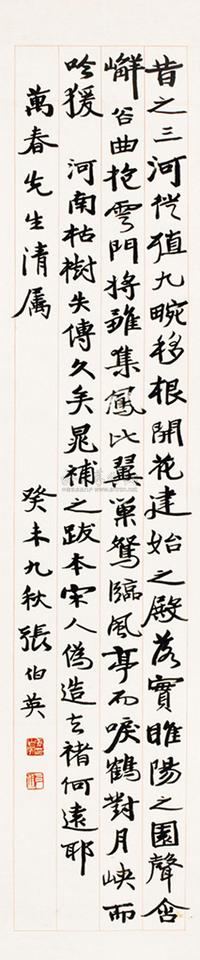 昔之三河徙殖九畹移根開花建始之殿落實睢陽之園聲含
嶰谷曲抱雲門將雛集鳳比翼巢鴛臨風亭而唳鶴對月峽而
吟猨 河南枯樹失傳久矣晁補之跋本宋人偽造去褚何遠耶
萬春先生清属 癸未九秋張伯英